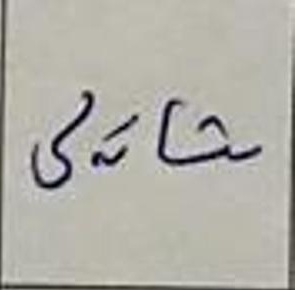 شانەی